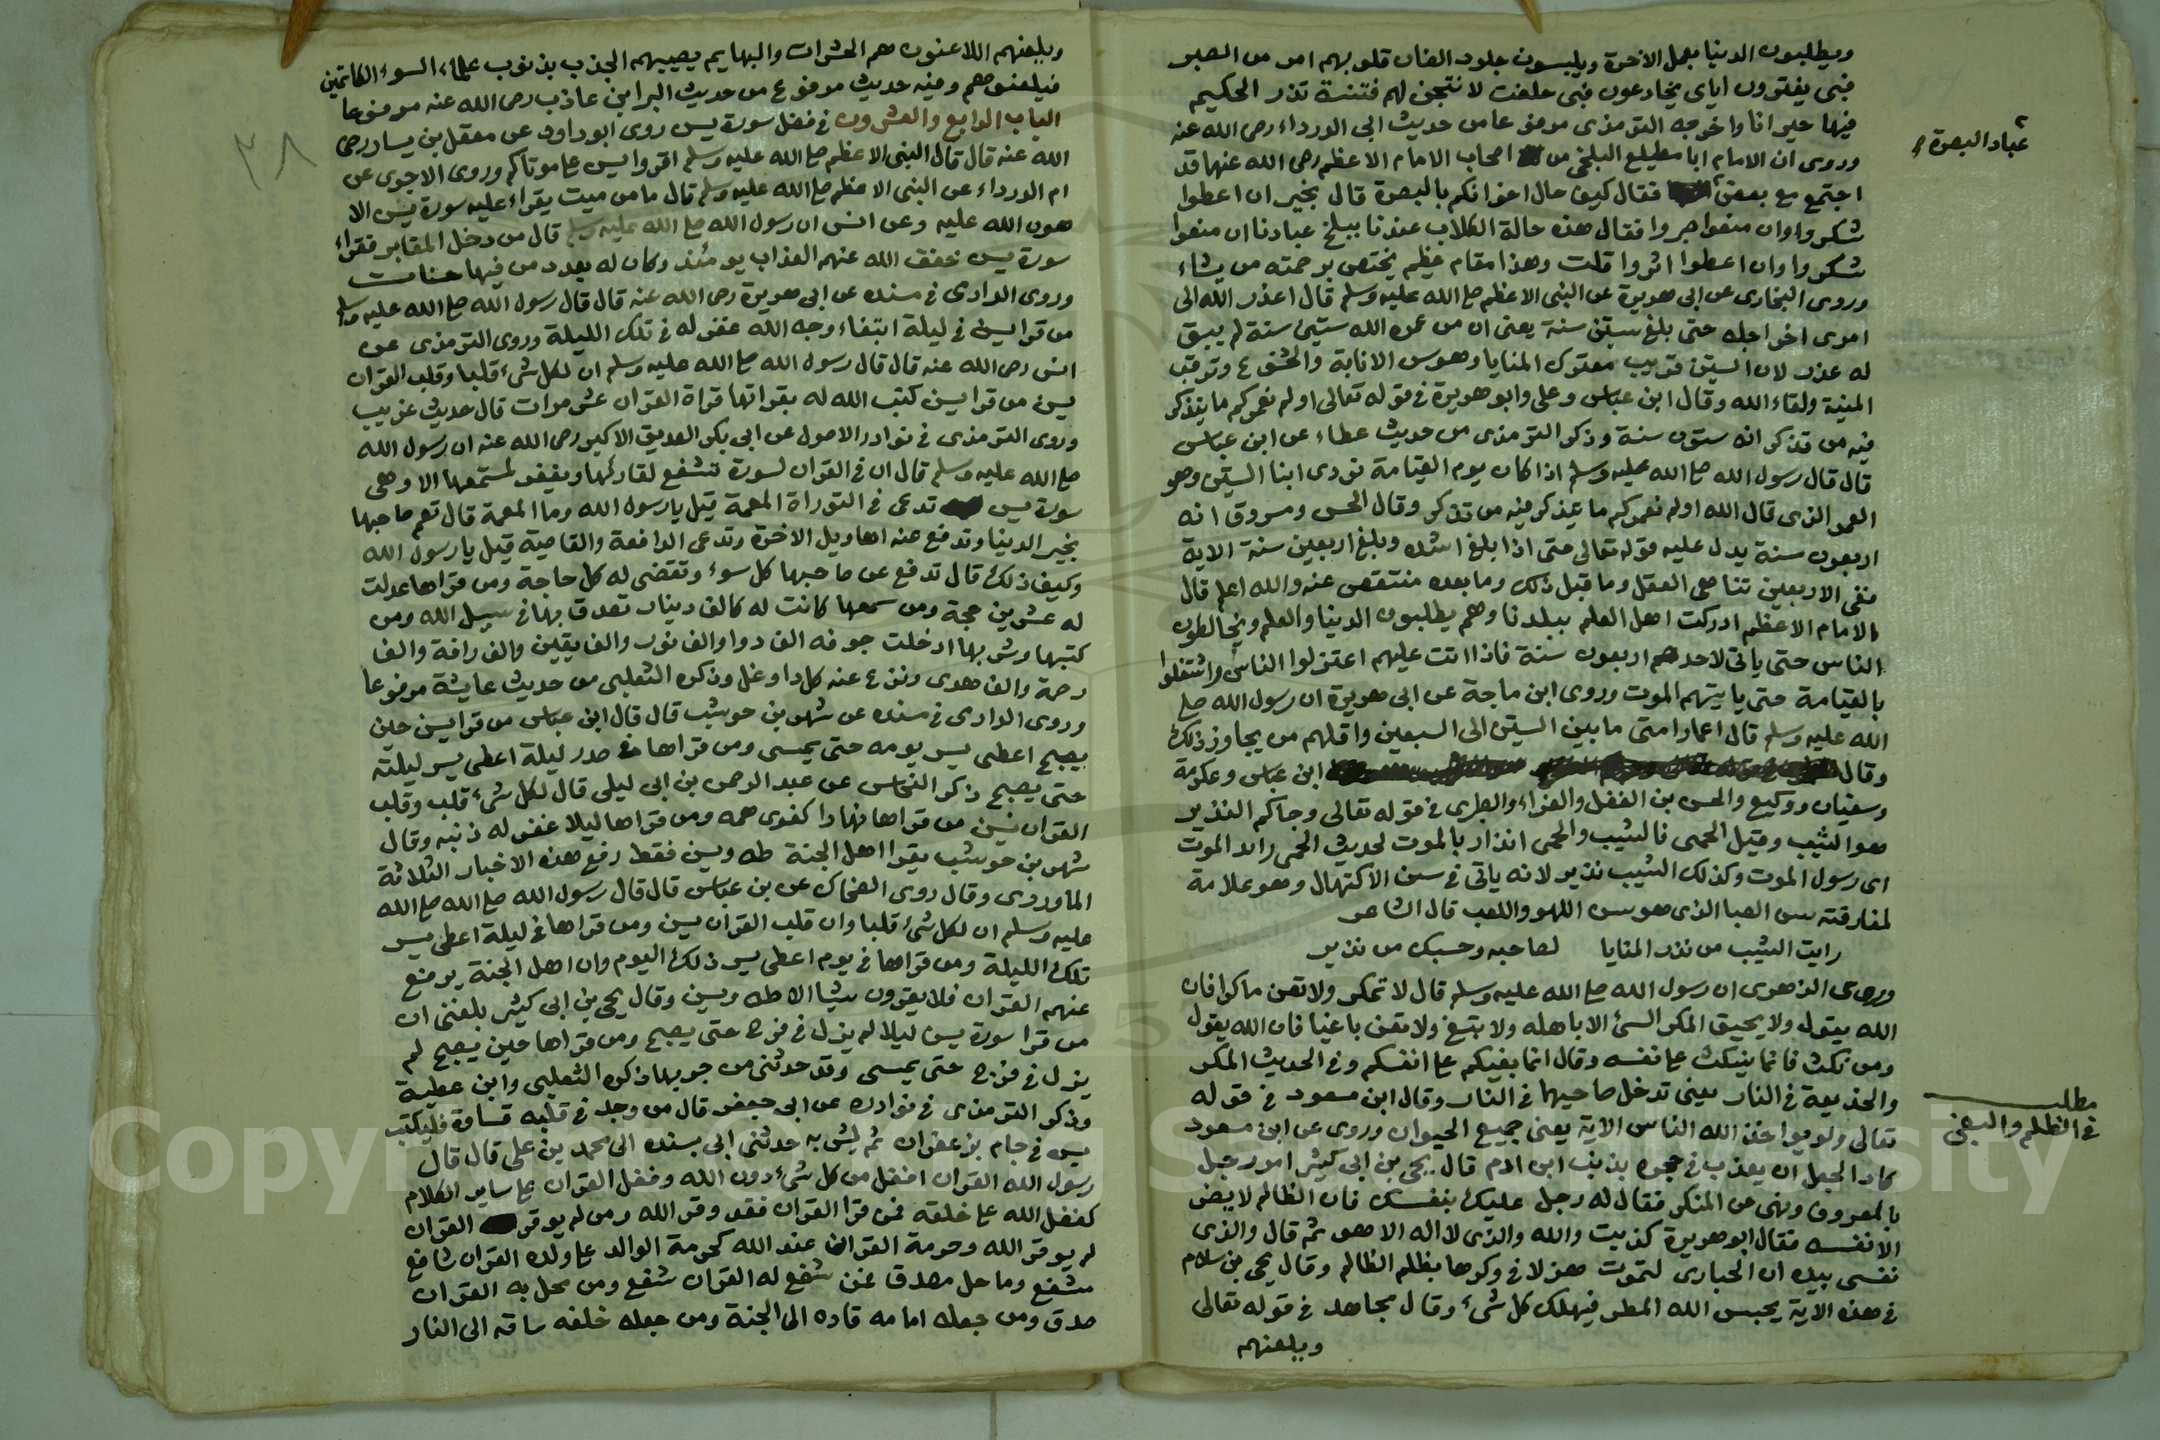 ويطلبون الدنيا بعمل الاخرة ويلبسون جلود الضان قلوبهم امر من الصبر
فبي يفترون اياى يخادعون فبى حلفت لا تيحن لهم فتنة تذر الحكيم
فيها حيرانا واخرجه الترمذى مرفوعا من حديث ابى الدرداء رضى الله عنه
وروى ان الامام ابا مطيع البلخى من اصحاب الامام الاعظم رضى الله عنهما قد
عباد البصرة
اجتمع مع بعض فقال كيف حال اخوانكم بالبصرة قال بخير ان اعطوا
شكروا وان منعوا صبروا فقال هذه حالة الكلاب عندنا ببلخ عبادنا ان منعوا
شكروا وان اعطوا اثروا قلت وهذا مقام عظيم يختص برحمته من يشاء
وروى البخارى عن ابى هريرة عن النبى الاعظم صلى الله عليه وسلم قال اعذر الله الى
امرى اخر اجله حتى بلغ ستين سنة يعنى ان من عمره الله ستين سنة لم يبق
له عذر لان الستين قريب معترك المنايا وهو سن الانابة والخشوع وترقب
المنية ولقاء الله وقال ابن عباس وعلى وابو هريرة فى قوله تعالى اولم نعمركم ما يتذكر
فيه من تذكر انه ستون سنة وذكر الترمذى من حديث عطاء عن ابن عباس
قال قال رسول الله صلى الله عليه وسلم اذا كان يوم القيامة نودى ابنا الستين وهو
العمر الذى قال الله اولم نعمركم ما يتذكر فيه من تذكر وقال الحسن ومسروق انه
اربعون سنة يدل عليه قوله تعالى حتى اذا بلغ اشده وبلغ اربعين سنة الاية
ففى الاربعين تناهى العقل وما قبل ذلك وما بعده منتقص عنه والله اعلم قال
الامام الاعظم ادركت اهل العلم ببلدنا وهم يطلبون الدنيا والعلم ويخالطون
الناس حتى ياتى لاحدهم اربعون سنة فاذا اتت عليهم اعتزلوا الناس واشتغلوا
بالقيامة حتى ياتيهم الموت وروى ابن ماجة عن ابى هريرة ان رسول الله صلى
الله عليه وسلم قال اعمار امتى ما بين الستين الى السبعين واقلهم من يجاوز ذلك
وقال ابن عباس وعكرمة
وسفيان ووكيع والحسن بن الفضل والفراء والطبرى فى قوله تعالى وجاكم النذير
هو الشيب وقيل الحمى فالشيب والحمى انذار بالموت لحديث الحمى رائد الموت
اى رسول الموت وكذلك الشيب نذير لانه ياتى فى سن الاكتهال وهو علامة
لمفارقته سن الصبا الذى هو سن اللهو واللعب قال الشاعر
رايت الشيب من نذر المنايا لصاحبه وحسبك من نذير
وروى الزهرى ان رسول الله صلى الله عليه وسلم قال لا تمكر ولا تعن ماكرا فان
الله يقول ولا يحيق المكر السئ الا باهله ولا تبغ ولا تعن باغيا فان الله يقول
ومن نكث فانما ينكث على نفسه وقال انما بغيكم على انفسكم وفى الحديث المكر
والخديعة فى النار يعنى تدخل صاحبهما فى النار وقال ابن مسعود فى قوله
مطلب
فى الظلم والبغى
تعالى ولو يواخذ الله الناس الاية يعنى جميع الحيوان وروى عن ابن مسعود
كاد الجعل ان يعذب فى جحره بذنب ابن ادم قال يحى بن ابى كثير امر رجل
بالمعروف ونهى عن المنكر فقال له رجل عليك بنفسك فان الظالم لا يضر
الا نفسه فقال ابو هريرة كذبت والله والذى لا اله الا هو ثم قال والذى
نفسى بيده ان الحبارى لتموت هزلا فى وكرها بظلم الظالم وقال يحى بن سلام
فى هذه الاية يحبس الله المطر فيهلك كل شئ وقال مجاهد فى قوله تعالى
ويلعنهم
ويلعنهم اللاعنون هم الحشرات والبهايم يصيبهم الجذب بذنوب علماء السوء الكاتمين
فيلعنوهم وفيه حديث مرفوع من حديث البرا بن عاذب رضى الله عنه مرفوعا
الباب الرابع والعشرون فى فضل سورة يس روى ابو داود عن معقل بن يسار رضى
٣٨
الله عنه قال قال النبى الاعظم صلى الله عليه وسلم اقروا يس على موتاكم وروى الاجرى عن
ام الدرداء عن النبى الاعظم صلى الله عليه وسلم قال ما من ميت يقراء عليه سورة يس الا
هون الله عليه وعن انس ان رسول الله صلى الله عليه وسلم قال من دخل المقابر فقراء
سورة يس خفف الله عنهم العذاب يومئذ وكان له بعدد من فيها حسنات
وروى الدارى فى مسنده عن ابى هريرة رضى الله عنه قال قال رسول الله صلى الله عليه وسلم
من قرا يس فى ليلة ابتغاء وجه الله غفر له فى تلك الليلة وروى الترمذى عن
انس رضى الله عنه قال قال رسول الله صلى الله عليه وسلم ان لكل شئ قلبا وقلب القران
يس من قرا يس كتب الله له بقراتها قراة القران عشر مرات قال حديث غريب
وروى الترمذى فى نوادر الاصول عن ابى بكر الصديق الاكبر رضى الله عنه ان رسول الله
صلى الله عليه وسلم قال ان فى القران لسورة تشفع لقارئها ويغفر لمستمعها الا وهى
سورة يس تدعى فى التوراة المعمة قيل يا رسول الله وما المعمة قال تعم صاحبها
بخير الدنيا وتدفع عنه اهاويل الاخرة وتدعى الدافعة والقاضية قيل يا رسول الله
وكيف ذلك قال تدفع عن صاحبها كل سوء وتقضى له كل حاجة ومن قراها عدلت
له عشرين حجة ومن سمعها كانت له كالف دينار تصدق بها فى سبيل الله ومن
كتبها وشربها ادخلت جوفه الف دوا والف نور والف يقين والف رافة والف
رحمة والف هدى ونزع عنه كل دا وغل وذكره الثعلبى من حديث عايشة مرفوعا
وروى الدارى فى مسنده عن شهر بن حوشب قال قال ابن عباس من قرا يس حين
يصبح اعطى يسر يومه حتى يمسى ومن قراها فى صدر ليلة اعطى يسر ليلته
حتى يصبح ذكر النحاس عن عبد الرحمن بن ابى ليلى قال لكل شئ قلب وقلب
القران يس من قراها نهارا كفى همه ومن قراها ليلا غفر له ذنبه وقال
شهر بن حوشب يقرا اهل الجنة طه ويس فقط رفع هذه الاخبار الثلاثة
الماوردى وقال روى الضحاك عن بن عباس قال قال رسول الله صلى الله صلى الله
عليه وسلم ان لكل شئ قلبا وان قلب القران يس ومن قراها فى ليلة اعطى يسر
تلك الليلة ومن قراها فى يوم اعطى يسر ذلك اليوم وان اهل الجنة يرفع
عنهم القران فلا يقرون شيئا الا طه ويس وقال يحى بن ابى كثير بلغنى ان
من قرا سورة يس ليلا لم يزل فى فرح حتى يصبح ومن قراها حين يصبح لم
يزل فى فرح حتى يمسى وقد حدثنى من جربها ذكره الثعلبى وابن عطية
وذكر الترمذى فى نوادره عن ابى جعفر قال من وجد فى قلبه قساوة فليكتب
يس فى جام بزعفران ثم يشربه حدثنى ابى بسنده الى محمد بن على قال قال
رسول الله القران افضل من كل شئ دون الله وفضل القران على ساير الكلام
كفضل الله على خلقه فمن قرا القران فقد وقر الله ومن لم يوقر القران
لم يوقر الله وحرمة القران عند الله كحرمة الوالد على ولده القران شافع
مشفع وماحل مصدق فمن شفع له القران شفع ومن محل به القران
صدق ومن جعله امامه قاده الى الجنة ومن جعله خلفه ساقه الى النار